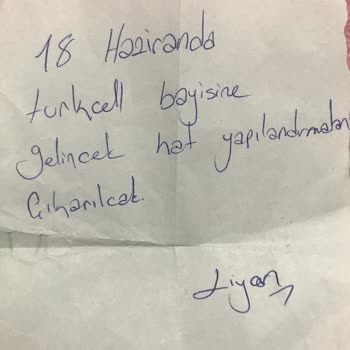 18 Haziranda
turkcell bayisine
gelincek hat yapılandırmaları
Çıkarılcak.
Liyan